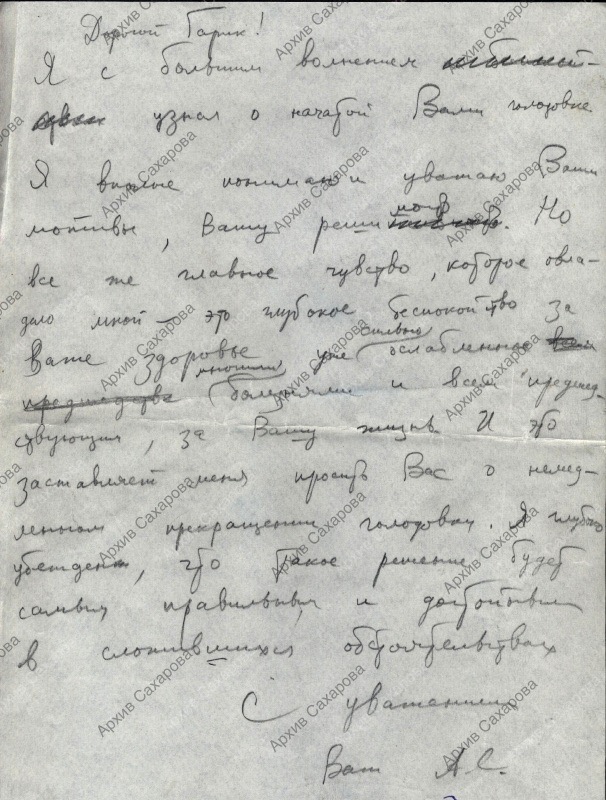 Дорогой Гарик!
Я с большим волнением
узнал о начатой Вами голодовке
Я вполне понимаю и уважаю Ваши
мотивы, Вашу решимость. Но
все же главное чувство, которое овла-
дело мной – это глубокое беспокойство за
Ваше здоровье, уже сильно ослабленное
многими болезнями и всем предшес-
ствующим, за Вашу жизнь. И это
заставляет меня просить Вас о немед-
ленном прекращении голодовки. Я глубоко
убежден, что такое решение будет
самым правильным и достойным
в сложившихся обстоятельствах
С уважением
Ваш А.С.
Архив Сахарова